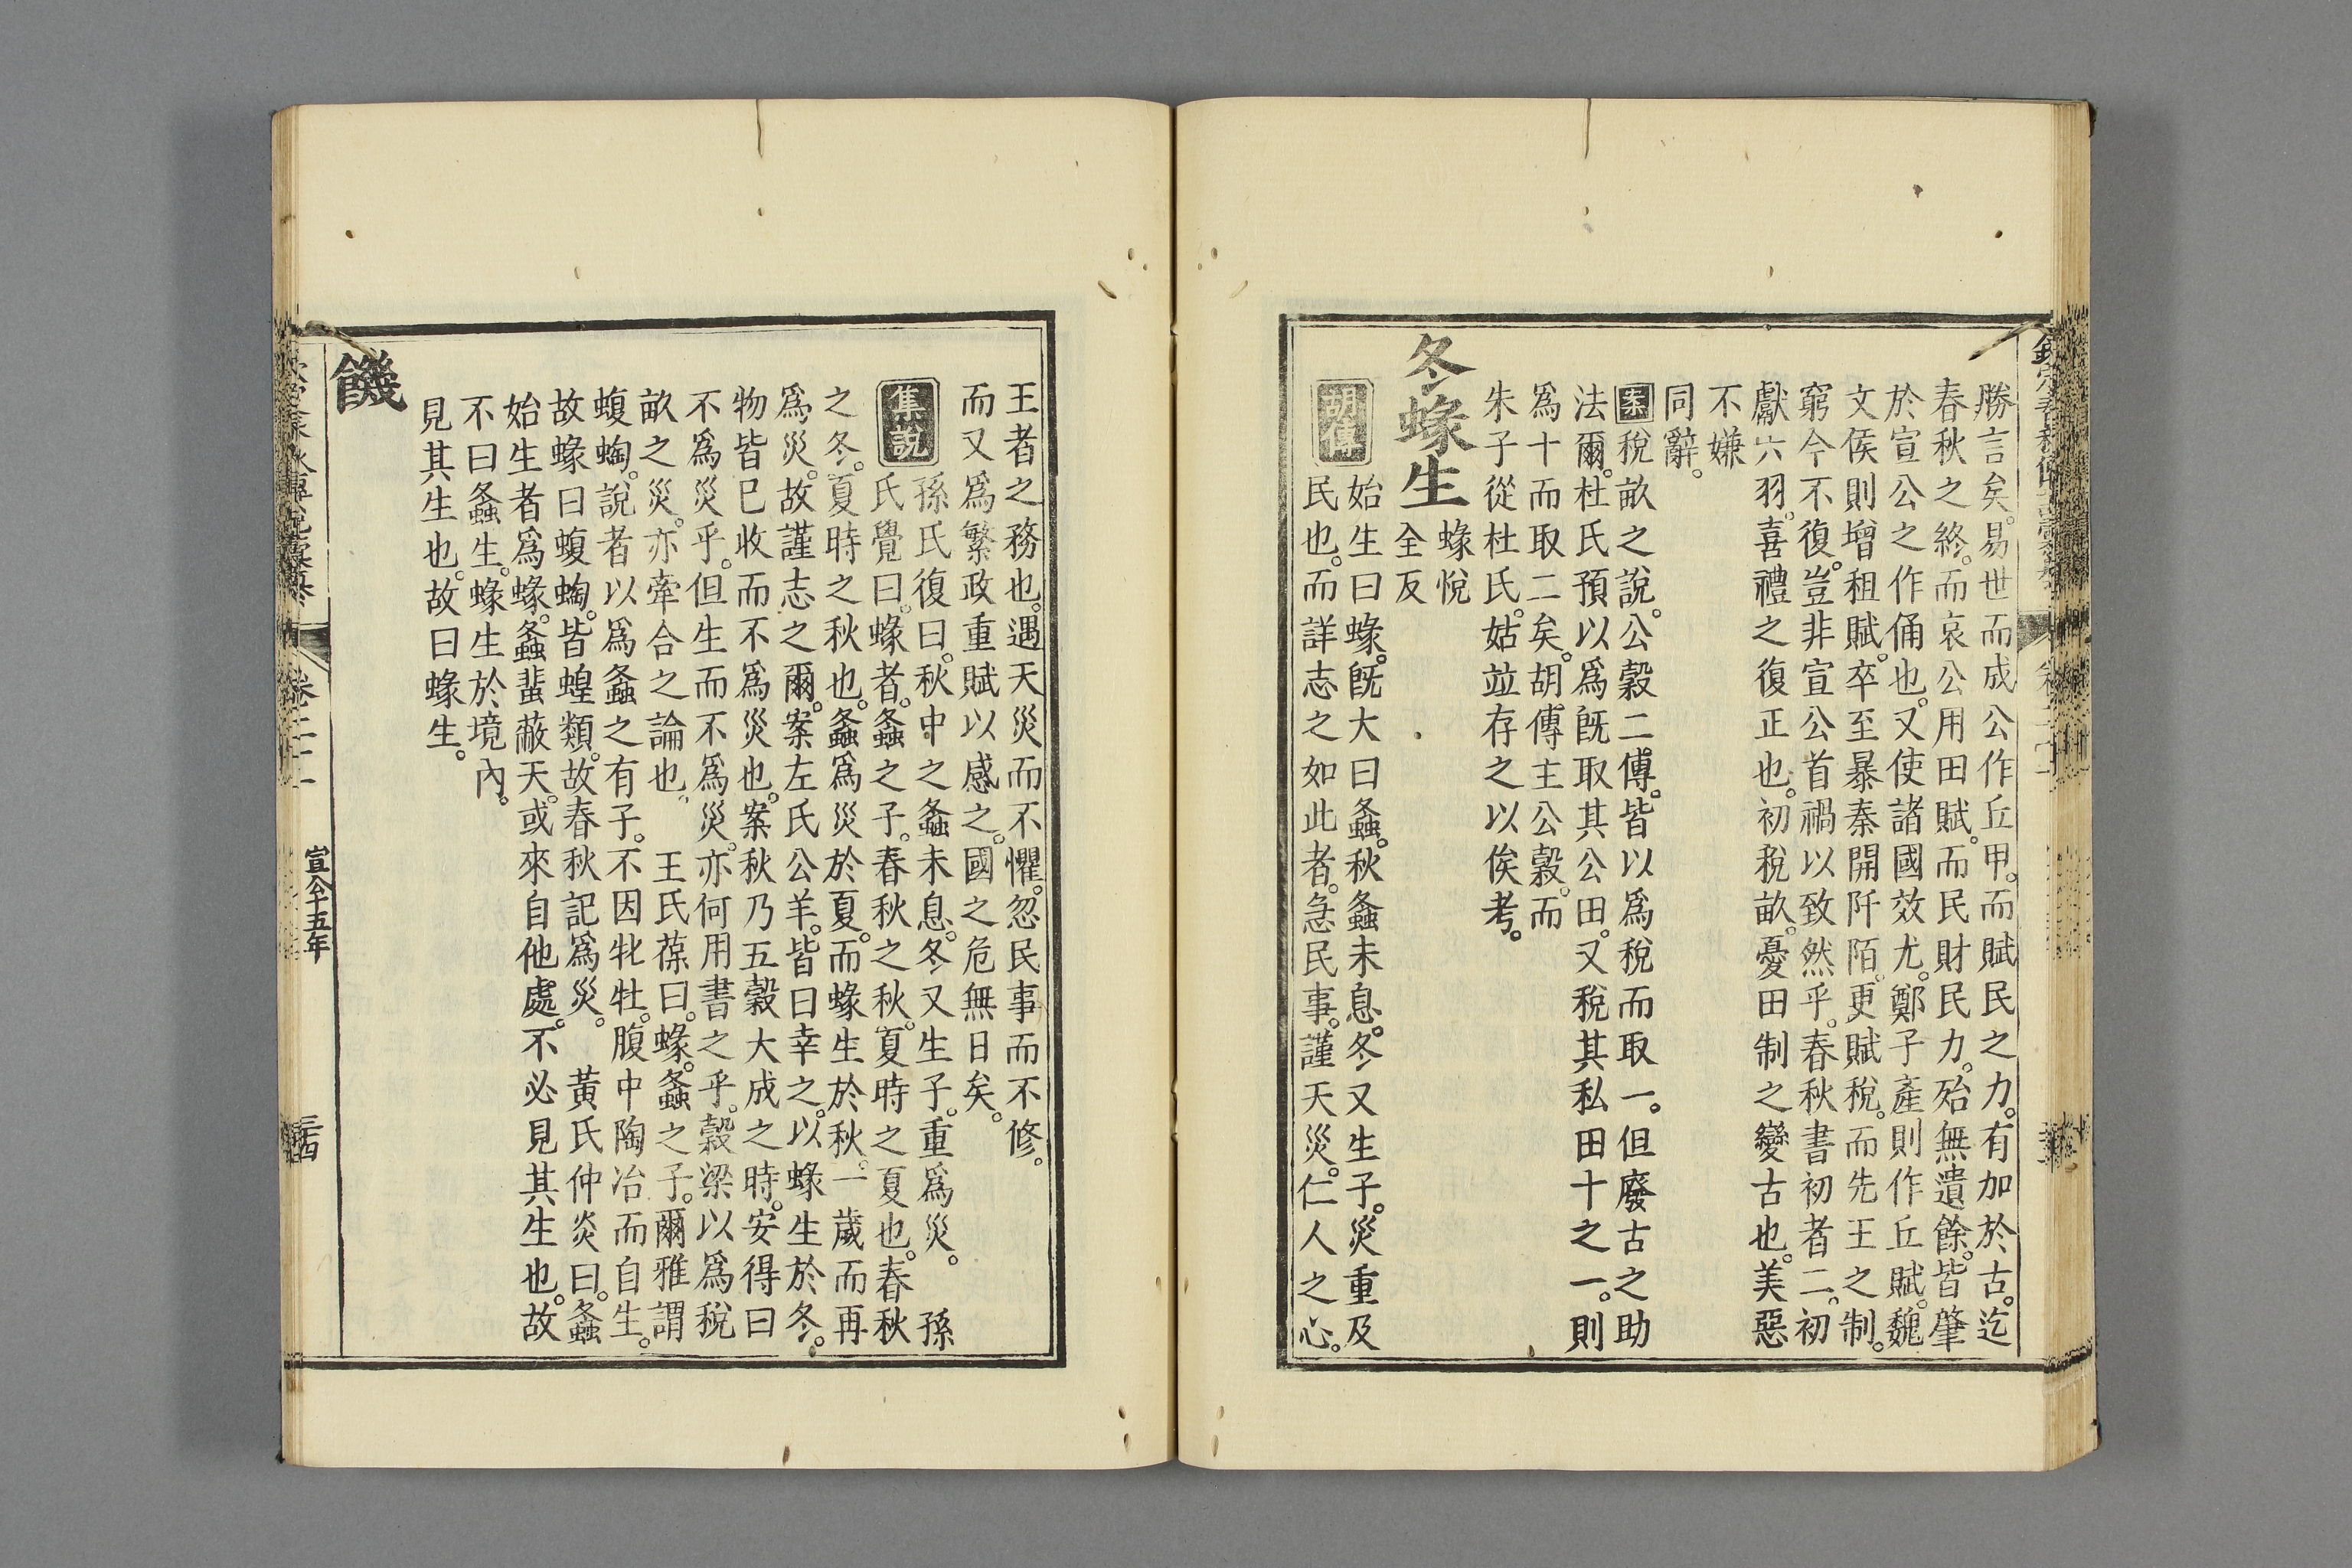 勝言矣。易世而成公作丘甲。而賦民之力。有加於古。迄
春秋之終。而哀公用田賦。而民財民力。殆無遺餘。皆肇
於宣公之作俑也。又使諸國效尤。鄭子產則作丘賦。魏
文侯則增租賦。卒至暴秦開阡陌。更賦稅。而先王之制。
窮今不復。豈非宣公首禍以致然乎。春秋書初者二。初
獻六羽。喜禮之復正也。初稅畝。憂田制之變古也。美惡
不嫌
同辭。
案稅畝之說。公穀二傳。皆以爲稅而取一。但廢古之助
法爾。杜氏預以爲旣取其公田。又稅其私田十之一。則
爲十而取二矣。胡傳主公穀。而
朱子從杜氏。姑竝存之以俟考。
冬蝝生
蝝悅
全反
胡傳
始生曰蝝。旣大曰螽。秋螽未息。冬又生子。災重及
民也。而詳志之如此者。急民事。謹天災。仁人之心。
王者之務也。遇天災而不懼。忽民事而不修。
而又爲繁政重賦以感之。國之危無日矣。
集說
孫氏復曰。秋中之螽未息。冬又生子。重爲災。 孫
氏覺曰。蝝者。螽之子。春秋之秋。夏時之夏也。春秋
之冬。夏時之秋也。螽爲災於夏。而蝝生於秋。一歲而再
爲災。故謹志之爾。案左氏公羊。皆曰幸之。以蝝生於冬。
物皆巳收而不爲災也。案秋乃五穀大成之時。安得曰
不爲災乎。但生而不爲災。亦何用書之乎。穀梁以爲稅
畝之災。亦牽合之論也。 王氏葆曰。蝝。螽之子。爾雅謂
蝮蜪。說者以爲螽之有子。不因牝牡。腹中陶冶而自生。
故蝝曰蝮蜪。皆蝗類。故春秋記爲災。 黃氏仲炎曰。螽
始生者爲蝝。螽蜚蔽天。或來自他處。不必見其生也。故
不曰螽生。蝝生於境內。
見其生也。故曰蝝生。
饑
卷二十一
宣公十五年
三四